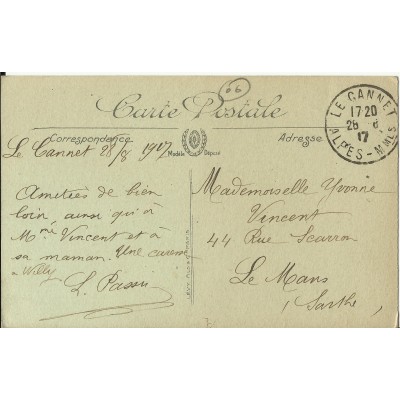 66
Carte Postale
Correspondance
Modèle Déposé
Adresse
LE CANNET
17·20
28 8
17
ALPES-MMES
Le Cannet 28/8 1917
Amitiés de bien
loin, ainsi qu'à
Mme Vincent et à
sa maman. Une caresse
à Willy
L. Passu
Mademoiselle Yvonne
Vincent
44 Rue Scarron
Le Mans
(Sarthe)